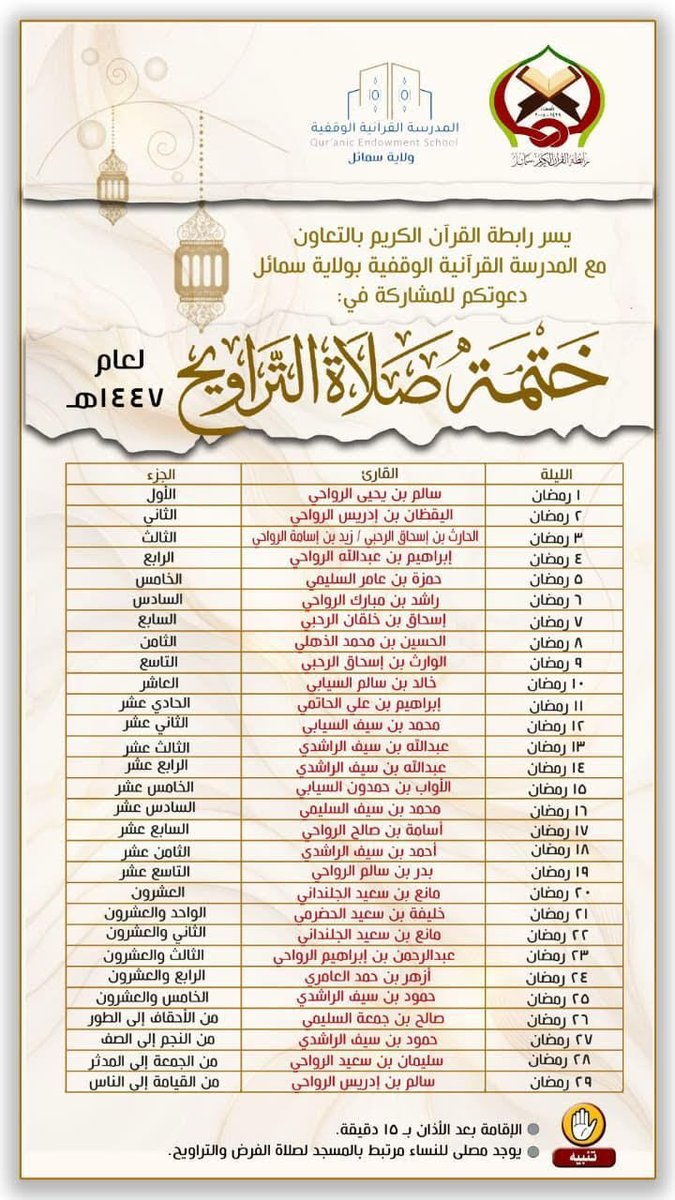 المدرسة القرآنية الوقفية
Qur'anic Endowment School
ولاية سمائل
رابطة القرآن الكريم سمائل
يسر رابطة القرآن الكريم بالتعاون
مع المدرسة القرآنية الوقفية بولاية سمائل
دعوتكم للمشاركة في:
ختمة صلاة التراويح
لعام
١٤٤٧هـ
الليلة القارئ الجزء
١ رمضان سالم بن يحيى الرواحي الأول
٢ رمضان اليقظان بن إدريس الرواحي الثاني
٣ رمضان الحارث بن إسحاق الرحبي / زيد بن إسامة الرواحي الثالث
٤ رمضان إبراهيم بن عبدالله الرواحي الرابع
٥ رمضان حمزة بن عامر السليمي الخامس
٦ رمضان راشد بن مبارك الرواحي السادس
٧ رمضان إسحاق بن خلقان الرحبي السابع
٨ رمضان الحسين بن محمد الذهلي الثامن
٩ رمضان الوارث بن إسحاق الرحبي التاسع
١٠ رمضان خالد بن سالم السيابي العاشر
١١ رمضان إبراهيم بن علي الحاتمي الحادي عشر
١٢ رمضان محمد بن سيف السيابي الثاني عشر
١٣ رمضان عبدالله بن سيف الراشدي الثالث عشر
١٤ رمضان عبدالله بن سيف الراشدي الرابع عشر
١٥ رمضان الأواب بن حمدون السيابي الخامس عشر
١٦ رمضان محمد بن سيف السليمي السادس عشر
١٧ رمضان أسامة بن صالح الرواحي السابع عشر
١٨ رمضان أحمد بن سيف الراشدي الثامن عشر
١٩ رمضان بدر بن سالم الرواحي التاسع عشر
٢٠ رمضان مانع بن سعيد الجلنداني العشرون
٢١ رمضان خليفة بن سعيد الحضرمي الواحد والعشرون
٢٢ رمضان مانع بن سعيد الجلنداني الثاني والعشرون
٢٣ رمضان عبدالرحمن بن إبراهيم الرواحي الثالث والعشرون
٢٤ رمضان أزهر بن حمد العامري الرابع والعشرون
٢٥ رمضان حمود بن سيف الراشدي الخامس والعشرون
٢٦ رمضان صالح بن جمعة السليمي من الأحقاف إلى الطور
٢٧ رمضان حمود بن سيف الراشدي من النجم إلى الصف
٢٨ رمضان سليمان بن سعيد الرواحي من الجمعة إلى المدثر
٢٩ رمضان سالم بن إدريس الرواحي من القيامة إلى الناس
تنبيه
الإقامة بعد الأذان بـ ١٥ دقيقة.
يوجد مصلى للنساء مرتبط بالمسجد لصلاة الفرض والتراويح.